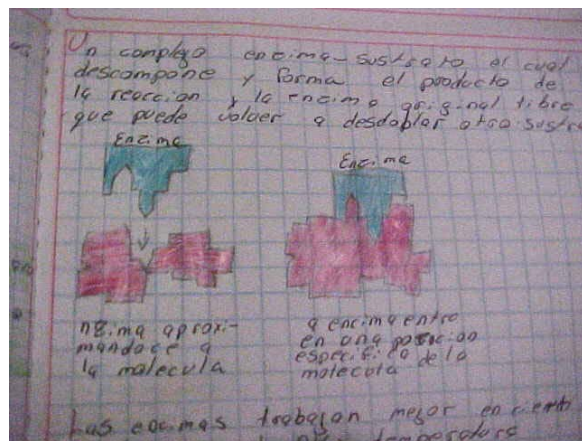 Un complejo encima-sustrato el cual
descompone y forma el producto de
la reaccion y la encima original libre
que puede volver a desdoblar otro sustra
Enzima
Enzima
nzima aproxi-
mandoce a
la molecula
a encima entro
en una posicion
especifica de la
molecula
Las encimas trabajan mejor en ciert
temperatura